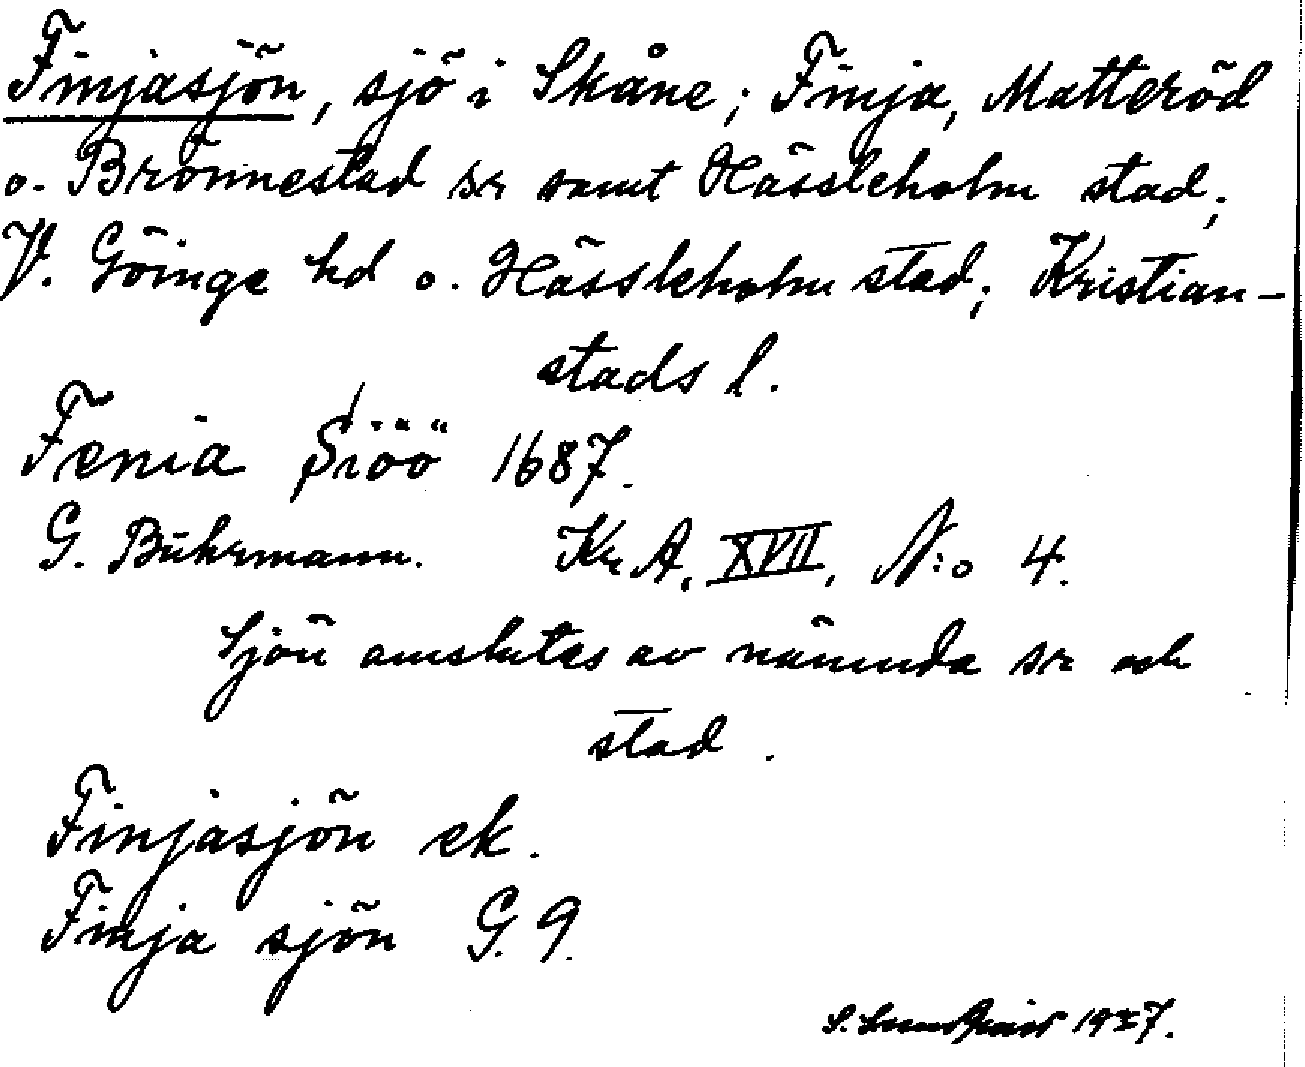 Finjasjön, sjö i Skåne; Finja, Matteröd
o. Brönnestad sr samt Hässleholm stad;
V. Göinge hd o. Hässleholm stad; Kristian-
stads l.
Fenia Siöö 1687.
G. Buhrmann. Kr A, XVII, N:o 4.
Sjön omslutes av nämnda sr och
stad.
Finjasjön ek.
Finja sjön G. 9.
S. 1927.